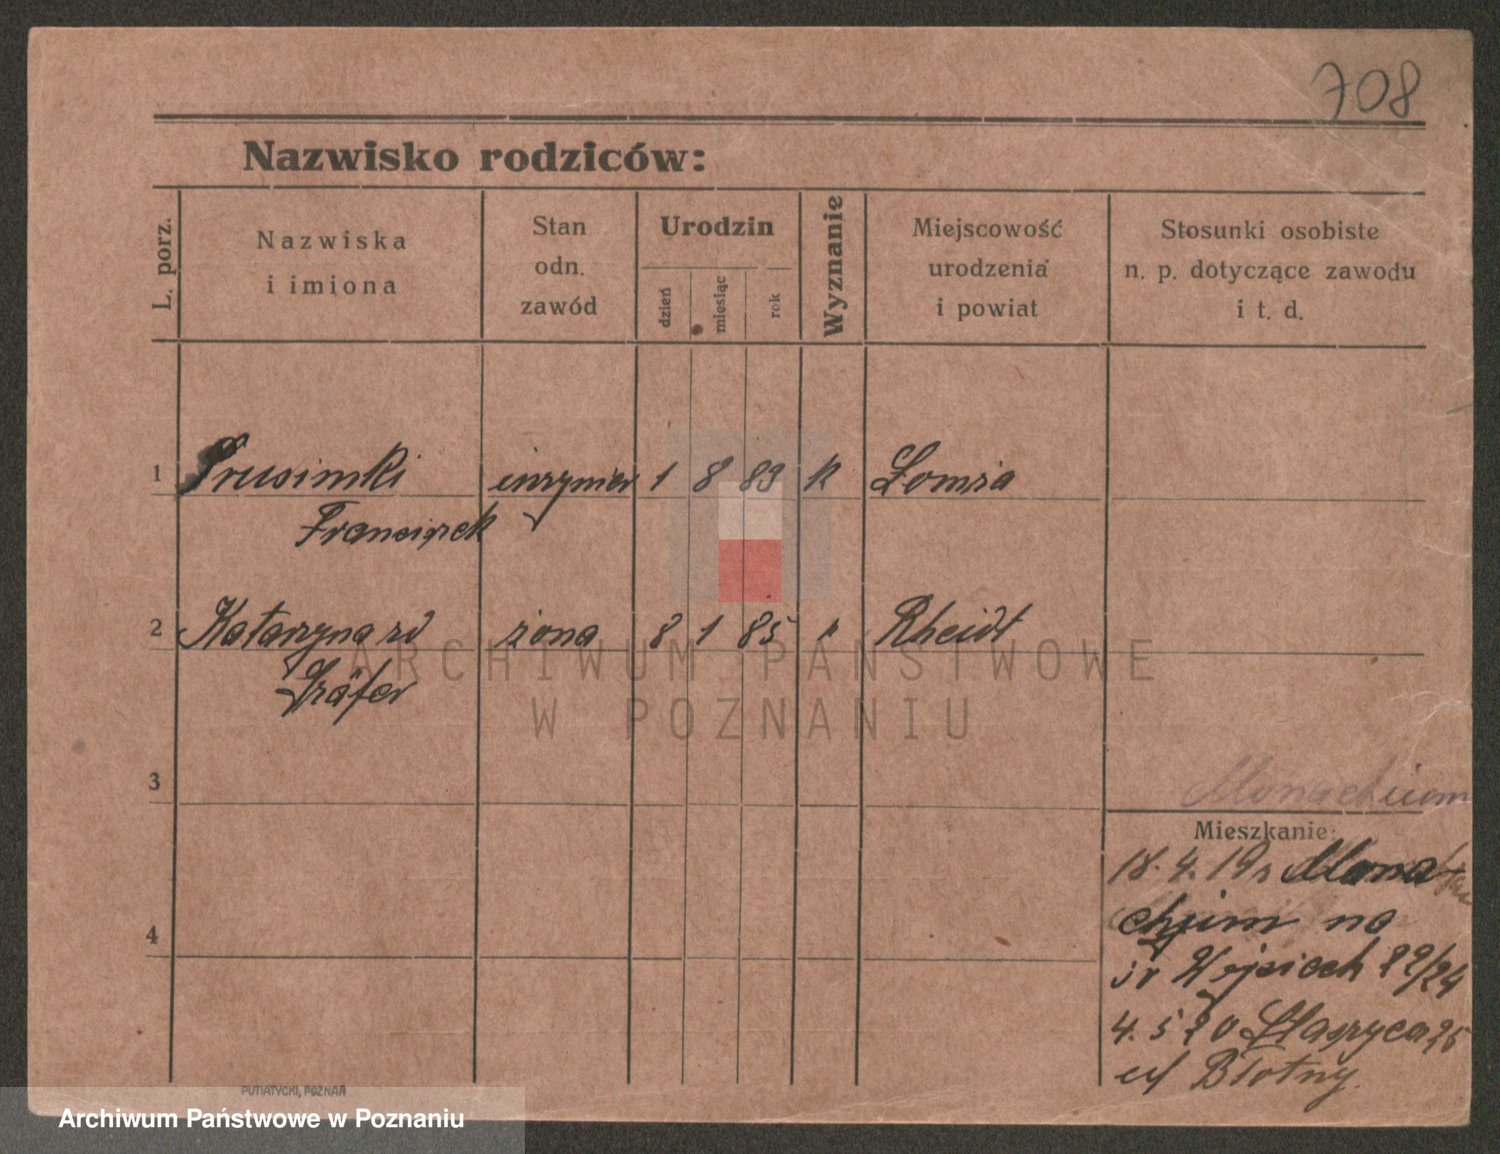 708
Nazwisko rodziców:
L. porz.
Nazwiska
i imiona
Stan
odn.
zawód
Urodzin
dzień
miesiąc
rok
Wyznanie
Miejscowość
urodzenia
i powiat
Stosunki osobiste
n. p. dotyczące zawodu
i t. d.
1 Prusimki inżynier 1 8 89 k Łomża
Franciszek
2 Katarzyna zd żona 8 1 85 k Rheidt
Gräfer
3
Monachium
Mieszkanie:
18. 4. 19 z Mona
chjum na
św Wojciech 22/24
4. 5 20
ul Błotny.
4
PUTIATYCKI, POZNAŃ
ARCHIWUM PAŃSTWOWE
W POZNANIU
Archiwum Państwowe w Poznaniu